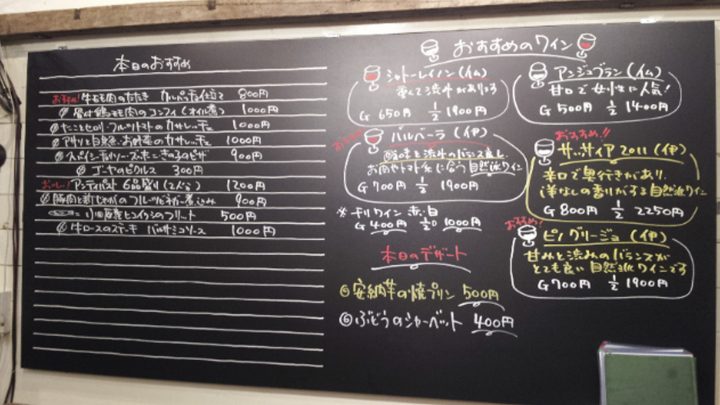 本日のおすすめ
おすすめ! 牛もも肉のたたき カルパッチョ仕立て 800円
骨付鶏もも肉のコンフィ(オイル煮) 1000円
セロリ フルーツトマトの 1000円
アサリと自然 お野菜の 1000円
スパイシーチョリソー きのこのピザ 900円
ゴーヤのピクルス 300円
アンティパスト 6品盛り(2人~) 1200円
豚肉と の フルーツビネガー煮込み 900円
のフリット 500円
牛ロースのステーキ バルサミコソース 1000円
おすすめのワイン
シャトーレイノン(仏)
軽くて渋みがあります
G 650円 1/2 1900円
バルベーラ(伊)
酸味と渋みのバランス良し
お肉やトマト に合う自然派ワイン
G 700円 1/2 1900円
チリワイン 赤・白
G 400円 1/2 1000円
本日のデザート
安納芋の焼プリン 500円
ぶどうのシャーベット 400円
アンジュブラン(仏)
甘口で女性に人気!
G 500円 1/2 1400円
おすすめ!!
サッサイア 2011(伊)
辛口で奥行きがあり、
洋なしの香りがする自然派ワイン
G 800円 1/2 2250円
おすすめ!
ピノグリージョ(伊)
甘みと渋みのバランスが
とても良い自然派ワインです
G 700円 1/2 1900円